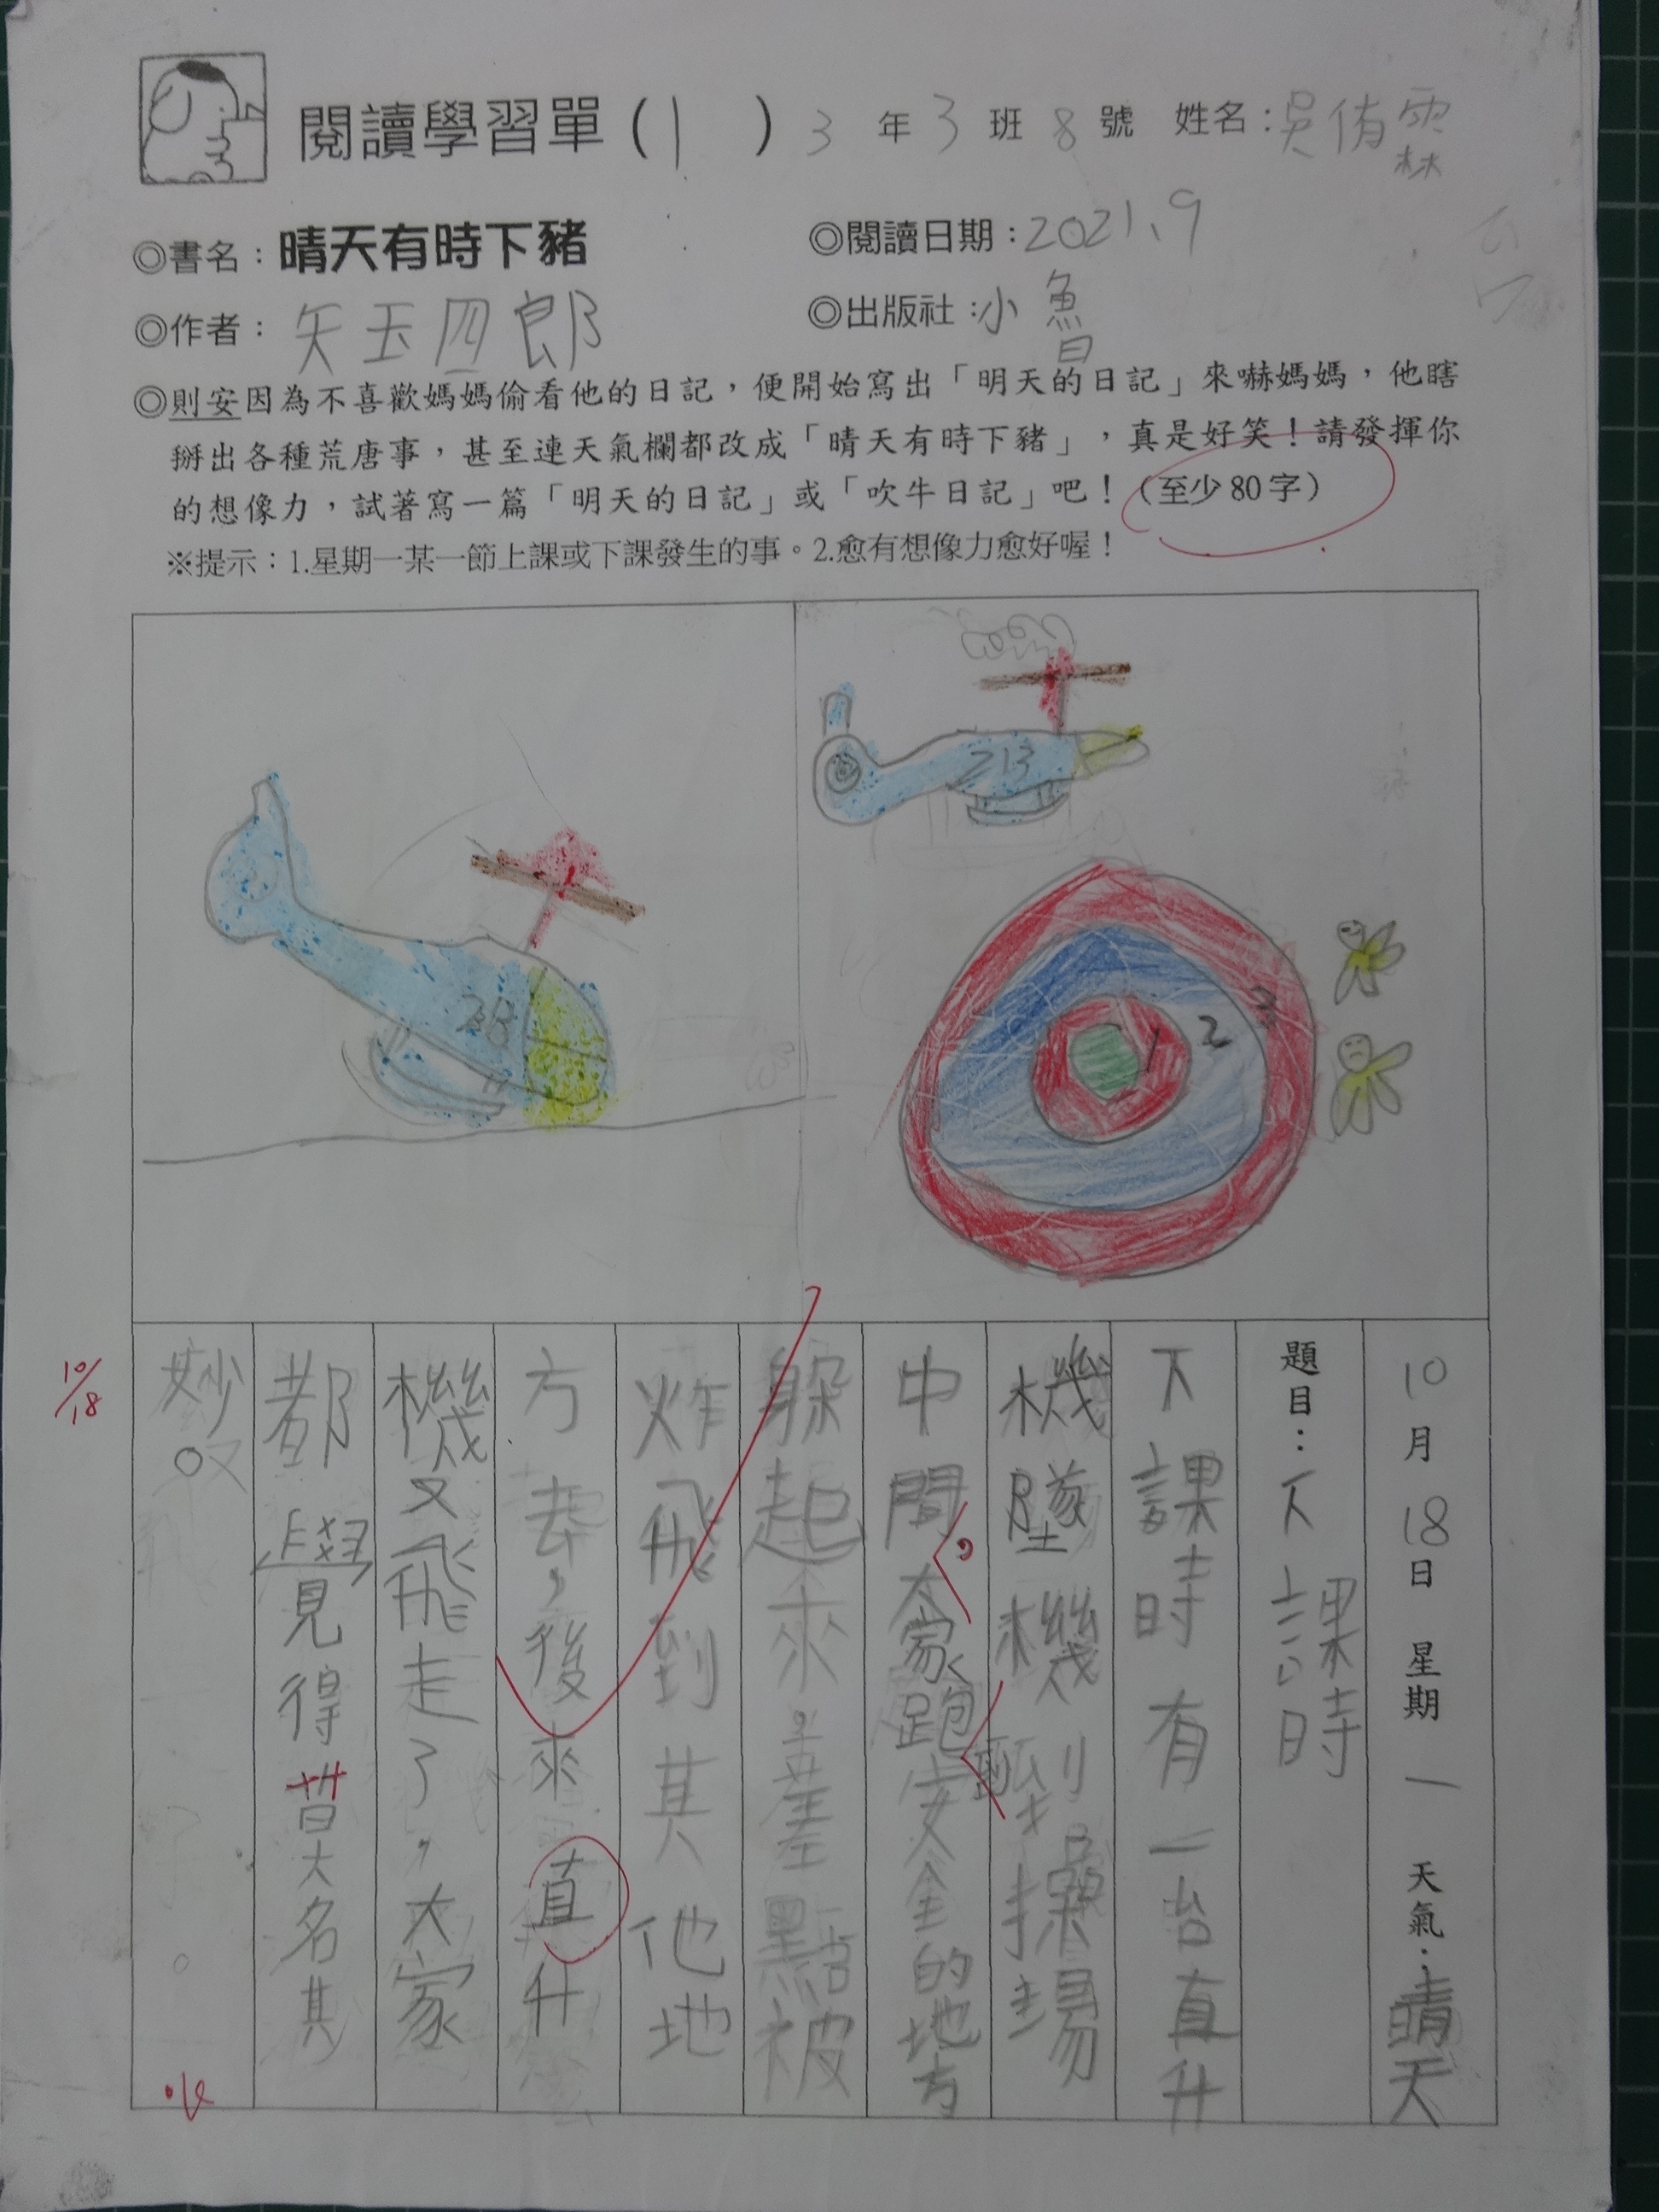 閱讀學習單(1) 3年3班8號 姓名:吳侑霖
◎書名:晴天有時下豬 ◎閱讀日期:2021、9
◎作者:矢玉四郎 ◎出版社:小魯
◎則安因為不喜歡媽媽偷看他的日記,便開始寫出「明天的日記」來嚇媽媽,他瞎
掰出各種荒唐事,甚至連天氣欄都改成「晴天有時下豬」,真是好笑!請發揮你
的想像力,試著寫一篇「明天的日記」或「吹牛日記」吧!(至少80字)
※提示:1.星期一某一節上課或下課發生的事。2.愈有想像力愈好喔!
213
28
1 2 3
10月18日 星期一 天氣:晴天
題目:下課時
下課時有一台直升
機墜機到操場
中間,大家跑到安全的地方
躲起來,差點被
炸飛到其他地
方去,後來直升
機又飛走了,大家
都覺得莫大名其
妙。
10/18